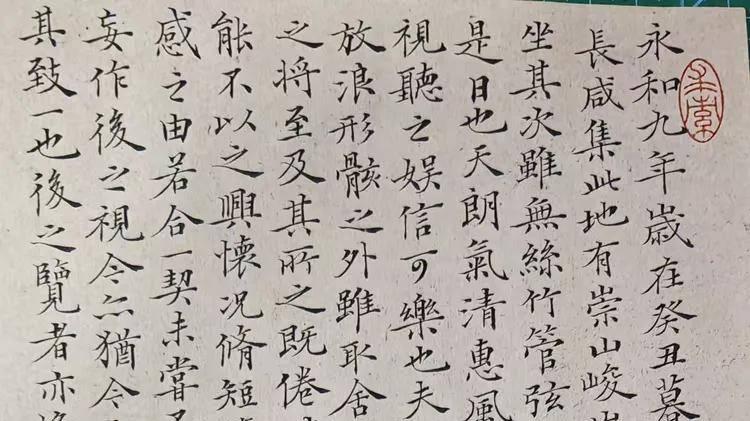 永和九年歲在癸丑暮
長咸集此地有崇山峻
坐其次雖無絲竹管弦
是日也天朗氣清惠風
視聽之娛信可樂也夫
放浪形骸之外雖取舍
之將至及其所之既倦
能不以之興懷况脩短
感之由若合一契未嘗
妄作後之視今亦猶今
其致一也後之覽者亦